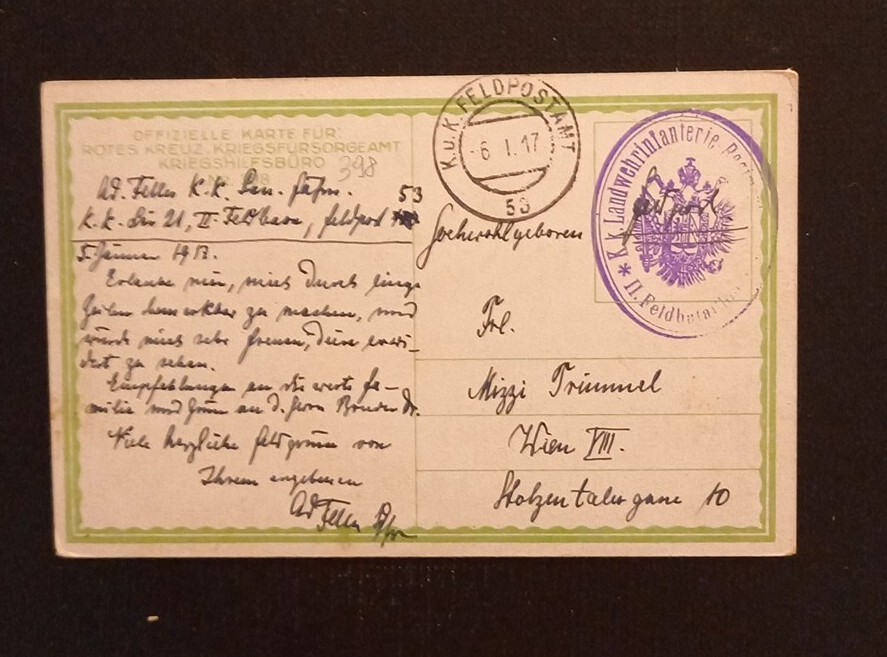 OFFIZIELLE KARTE FÜR:
ROTES KREUZ, KRIEGSFÜRSORGEAMT
KRIEGSHILFSBÜRO
398
Ad. Feller K.K. San. Fähn.
K.K. Div 21, II. Feldbaon, Feldpost 53
5. Jänner 1917.
Erlaube mir, mich durch einige
Zeilen bemerkbar zu machen, und
würde mich sehr freuen, diese erwi-
dert zu sehen.
Empfehlungen an die werte Fa-
milie und Grüsse an d. Herrn Bruder Dr.
Viele herzliche Feldgrüsse von
Ihrem ergebenen
Ad Feller
K.u.K. FELDPOSTAMT
6. I. 17
53
K.k. Landwehrinfanterie
II. Feldbataillon
Hochwohlgeboren
Frl.
Mizzi Trimmel
Wien VIII.
Stolzentalergasse 10